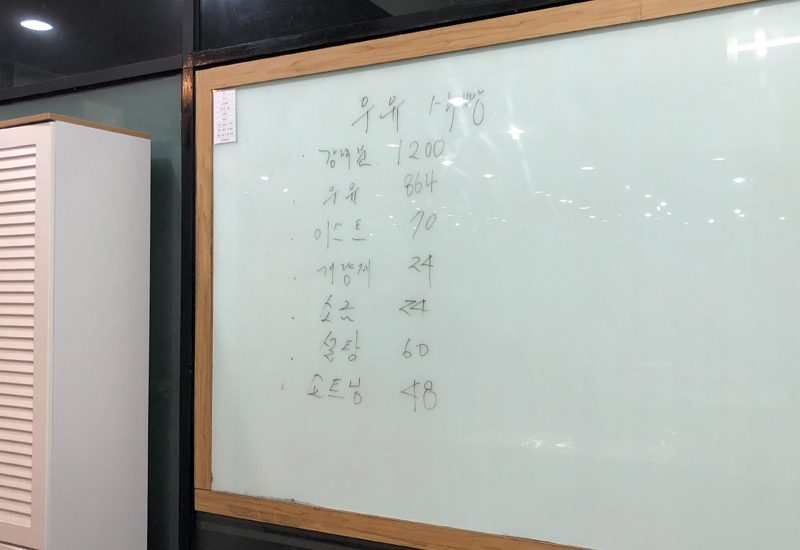 우유 식빵
강력분 1200
우유 864
이스트 70
개량제 24
소금 24
설탕 60
쇼트닝 48